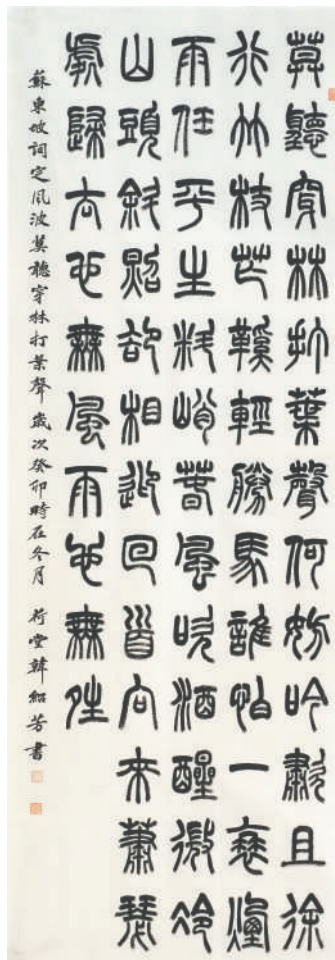 莫聽穿林打葉聲何妨吟嘯且徐
行竹杖芒鞵輕勝馬誰怕一蓑煙
雨任平生料峭春風吹酒醒微冷
山頭斜照卻相迎回首向來蕭瑟
處歸去也無風雨也無晴
蘇東坡詞定風波莫聽穿林打葉聲歲次癸卯時在冬月 荷堂韓紹芳書